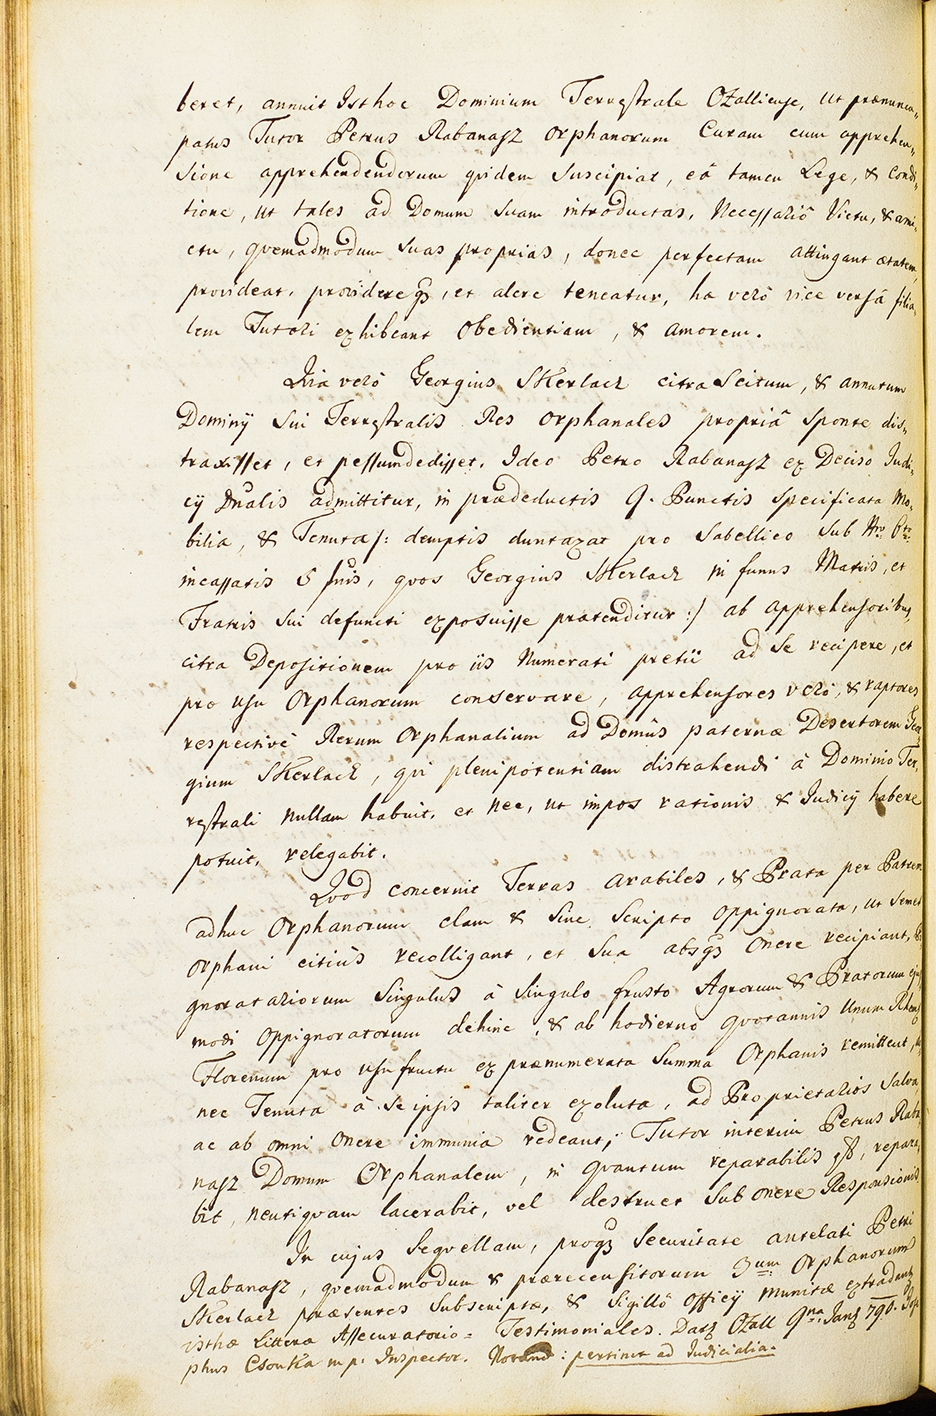 beret, annuit Isthoc Dominium Terrestrale Ozalliense, ut prænuncu„
patus Tutor Petrus Rabanasz Orphanorum Curam cum apprehen„
sione apprehendendorum quidem suscipiat, eâ tamen Lege, & Condi„
tione, ut tales ad Domum suam introductas, necessariô Victu, & ami„
ctu, qvemadmodum suas proprias, donec perfectam attingant ætatem,
provideat, providereq3, et alere teneatur, hæ verô vice versâ filia„
lem Tutori exhibeant Obedientiam, & amorem.
Qvia verô Georgius Skerlack citra Scitum, & annutum
Dominÿ sui Terrestralis Res Orphanales propriâ sponte dis„
traxisset, et pessumdedisset. Ideo Petro Rabanasz ex Deciso Judi„
cÿ Dnalis admittitur, in prædeductis 9. Punctis specificata Mo„
bilia, & Tenuta /: demptis duntaxat pro Sabellico sub Nro 6to
incassatis 5 fnis, quos Georgius Skerlack in funus Matris, et
Fratris sui defuncti exposuisse prætenditur :/ ab apprehensoribus,
citra Depositionem pro iis numerati pretii ad se recipere, et
pro usu Orphanorum conservare, apprehensores verô, & raptores
respectivè Rerum Orphanalium ad Domûs paternæ Desertorem Geor
gium Skerlack, qvi plenipotentiam distrahendi â Dominio Ter„
restrali nullam habuit, et nec, ut impos rationis & Judicÿ habere
potuit, relegabit.
Qvod concernit Terras arabiles, & Prata per Patrem
adhuc Orphanorum clam & sine scripto oppignorata, ut semet
Orphani citiùs recolligant, et sua absq3 Onere recipiant,
gnoratariorum singulus â singulo frusto Agrorum & Pratorum ejus
modi oppignoratorum dehinc, & ab hodierno qvotannis unum Rhen
Florenum pro usufructu ex prænumerata Summa Orphanis remittent,
nec Tenuta â se ipsis taliter exoluta, ad Proprietarios salva
ac ab omni Onere immunia redeant; Tutor interim Petrus Raba
nasz Domum Orphanalem, in qvantum reparabilis est, repara„
bit, neutiqvam lacerabit, vel destruet sub onere Responsionis
In cujus Seqvellam, proq3 Securitate antelati Petri
Rabanasz, qvemadmodum & prærecensitorum 3um Orphanorum
Skerlack præsentes subscriptæ, & Sigillô Officÿ munitæ extradantur
isthæ Litteræ Assecuratorio= Testimoniales. Dat3 Ozall 9na Jan3 790. Jose
phus Csonka mp: Inspector. Notand: pertinet ad Judicialia.